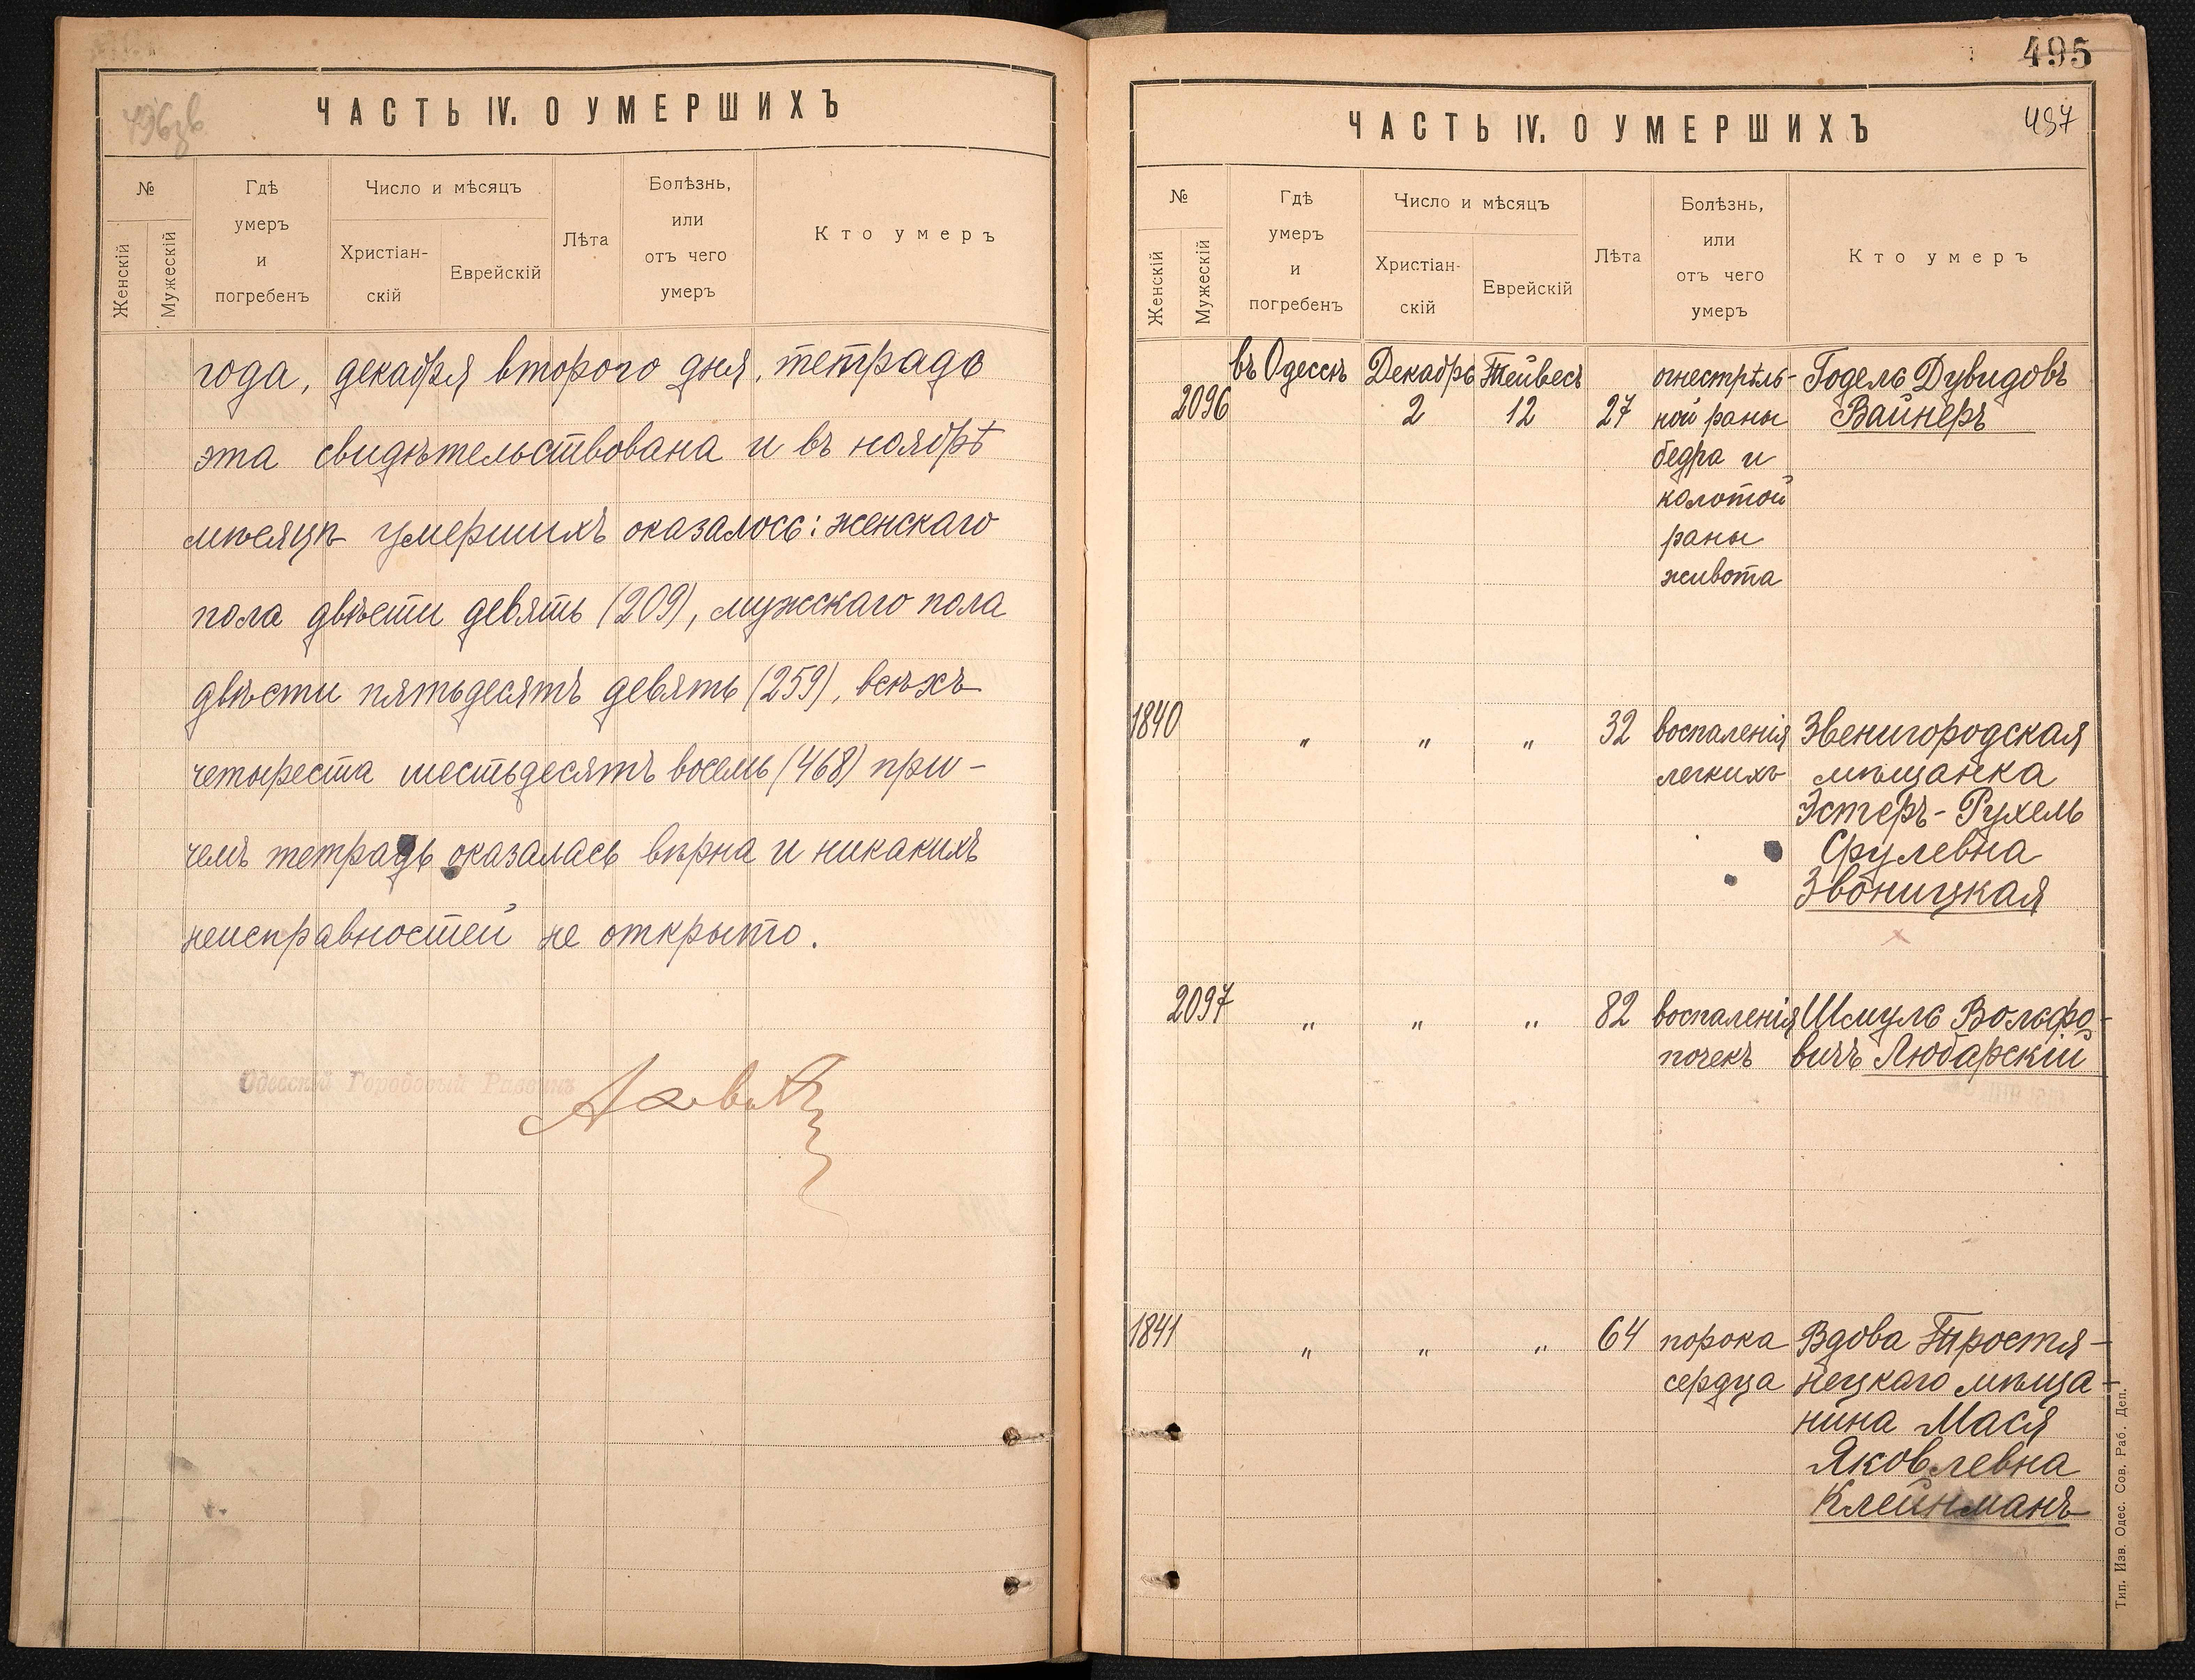 496зв
ЧАСТЬ IV. О УМЕРШИХЪ
№
Женскій
Мужескій
Гдѣ
умеръ
и
погребенъ
Число и мѣсяцъ
Христіан-
скій
Еврейскій
Лѣта
Болѣзнь,
или
отъ чего
умеръ
Кто умеръ
года, декабря второго дня, тетрадь
эта свидѣтельствована и въ ноябрѣ
мѣсяцѣ умершихъ оказалось: женскаго
пола двѣсти девять (209), мужскаго пола
двѣсти пятьдесятъ девять (259), всѣхъ
четыреста шестьдесятъ восемь (468) при-
чемъ тетрадь оказалась вѣрна и никакихъ
неисправностей не открыто.
Одесскій Городовый Раввинъ
495
497
ЧАСТЬ IV. О УМЕРШИХЪ
№
Женскій
Мужескій
Гдѣ
умеръ
и
погребенъ
Число и мѣсяцъ
Христіан-
скій
Еврейскій
Лѣта
Болѣзнь,
или
отъ чего
умеръ
Кто умеръ
въ Одессѣ Декабрь Тейвесъ огнестрѣль- Годель Дувидовъ
2096 2 12 27 ной раны Вайнеръ
бедра и
колотой
раны
живота
1840 " " " 32 воспаленія Звенигородская
легкихъ мѣщанка
Эстеръ-Рухель
Срулевна
Звоницкая
2097 " " " 82 воспаленія Шмуль Вольфо-
почекъ вичъ Любарскій
1841 " " " 64 порока Вдова Тростя-
сердца нецкаго мѣща-
нина Мася
Яковлевна
Клейнманъ
Тип. Изв. Одес. Сов. Раб. Деп.